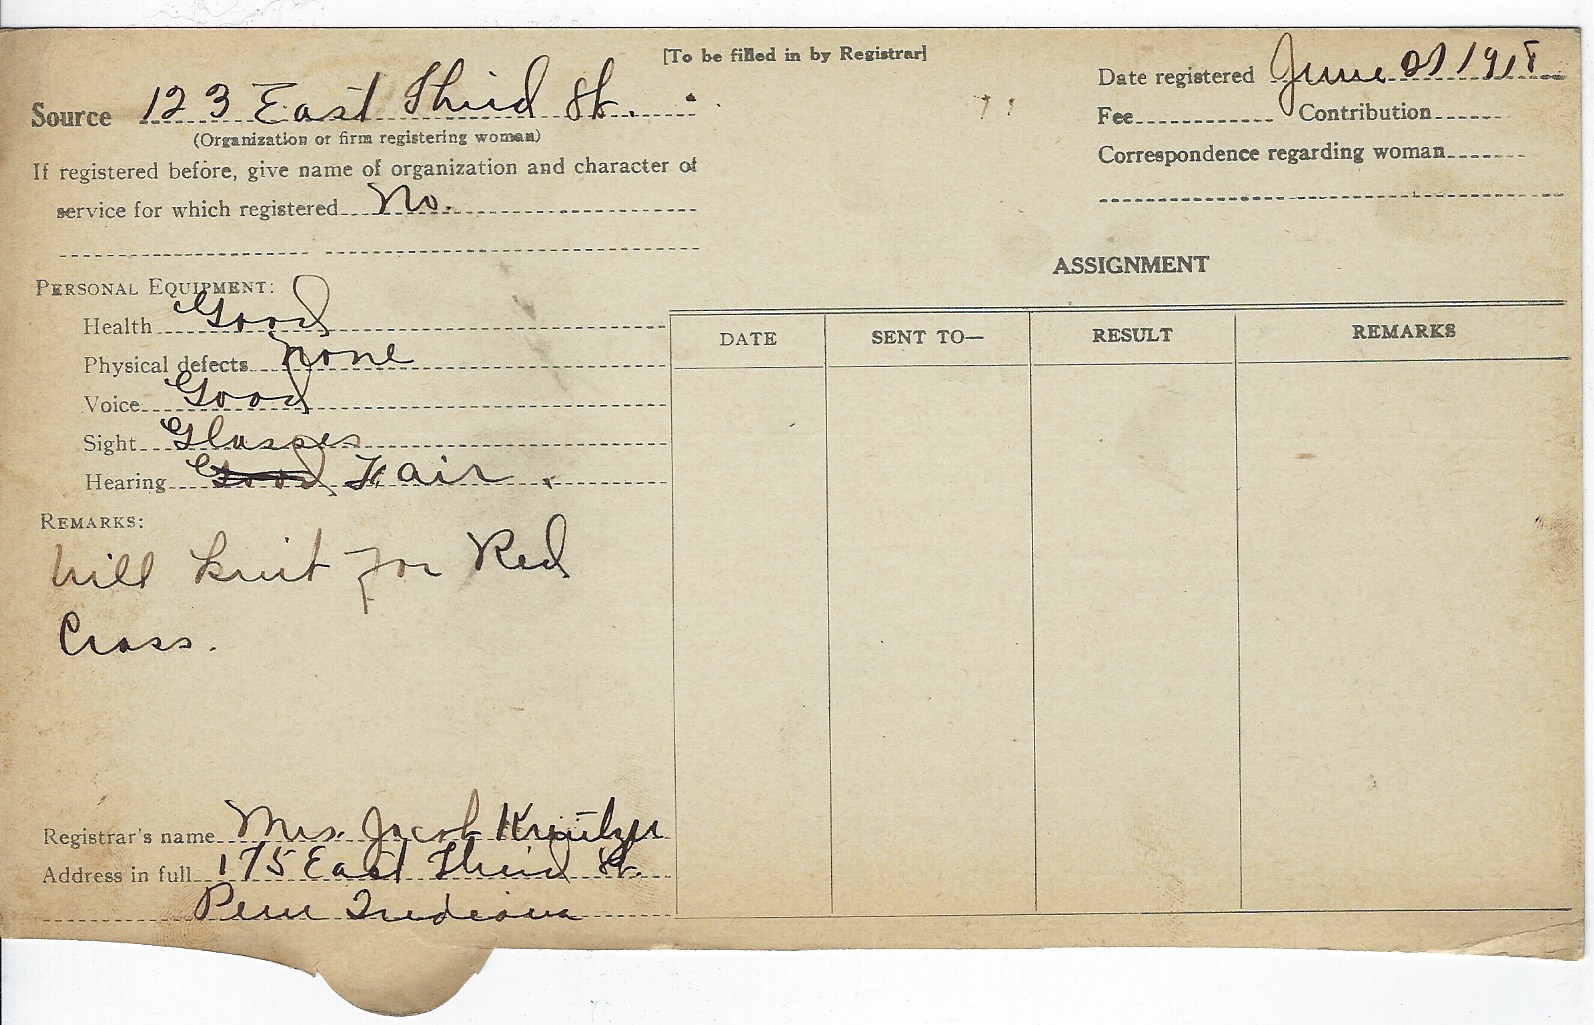 [To be filled in by Registrar]
Source 123 East Third St.
(Organization or firm registering woman)
If registered before, give name of organization and character of
service for which registered No.
Date registered June 1918
Fee Contribution
Correspondence regarding woman
PERSONAL EQUIPMENT:
Health Good
Physical defects None
Voice Good
Sight Glasses
Hearing Good Fair.
REMARKS:
Will knit for Red
Cross.
Registrar's name Mrs. Jacob Kreutzer
Address in full 175 East Third St.
Peru Indiana
ASSIGNMENT
DATE SENT TO— RESULT REMARKS